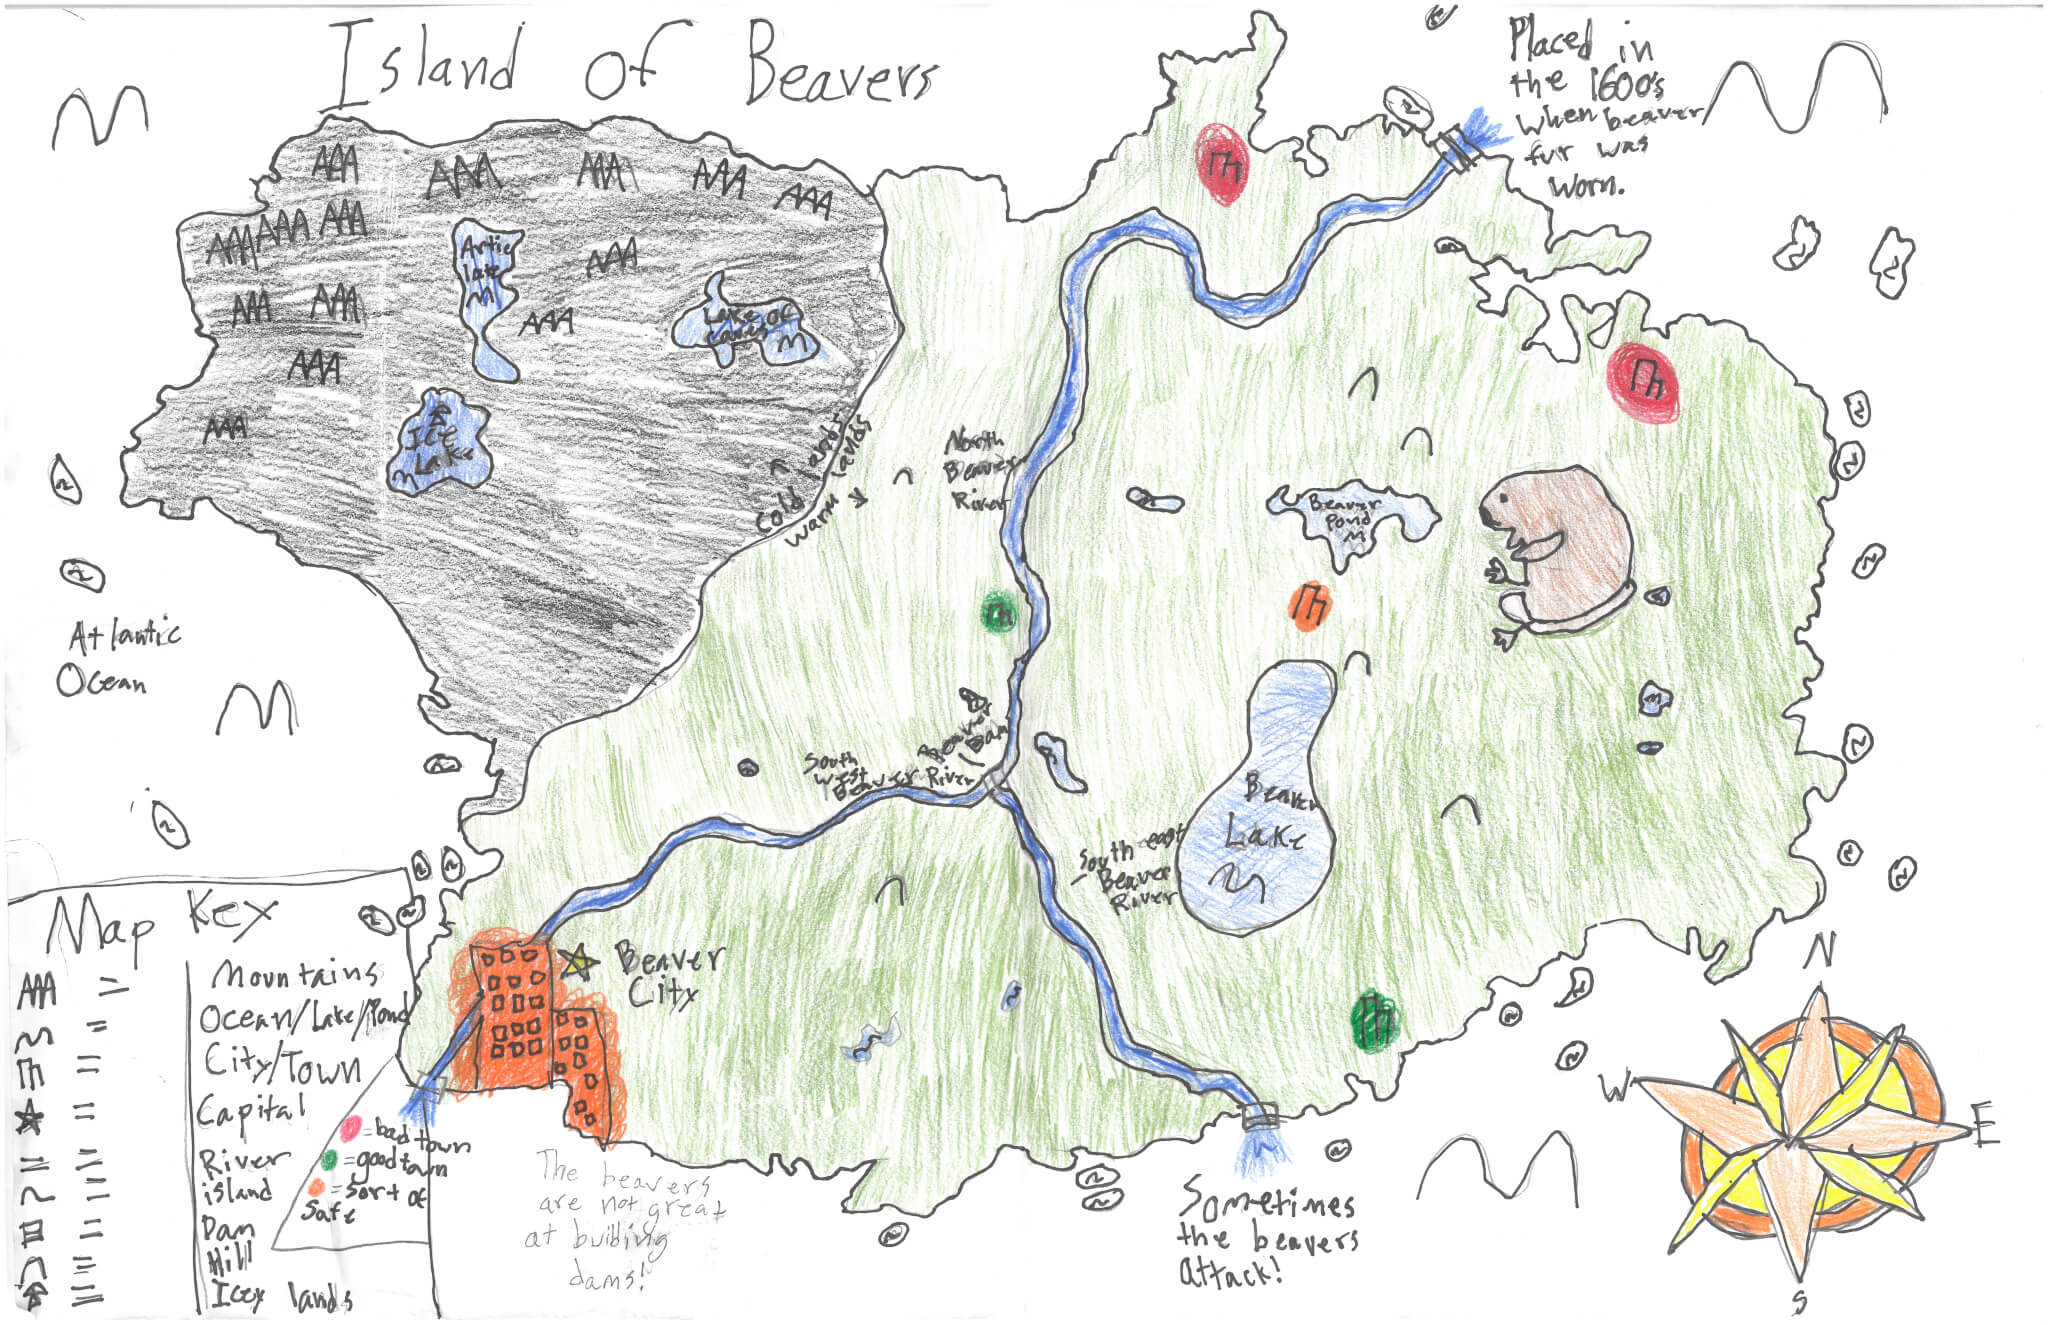 Island of Beavers
Placed in
the 1600's
when beaver
fur was
worn.
Artic
lake
Lake of
Ice
Lake
cold lands
warm lands
North
Beaver
River
Beaver
Pond
Atlantic
Ocean
South
West
Beaver River
Beavers
Dam
Beaver
Lake
South east
Beaver
River
Beaver
City
Map Key
Mountains
Ocean/Lake/Pond
City/Town
Capital
River
island
Dam
Hill
Icey lands
=bad town
=good town
=Sort of
Safe
The beavers
are not great
at building
dams!
Sometimes
the beavers
attack!
N
W
E
S